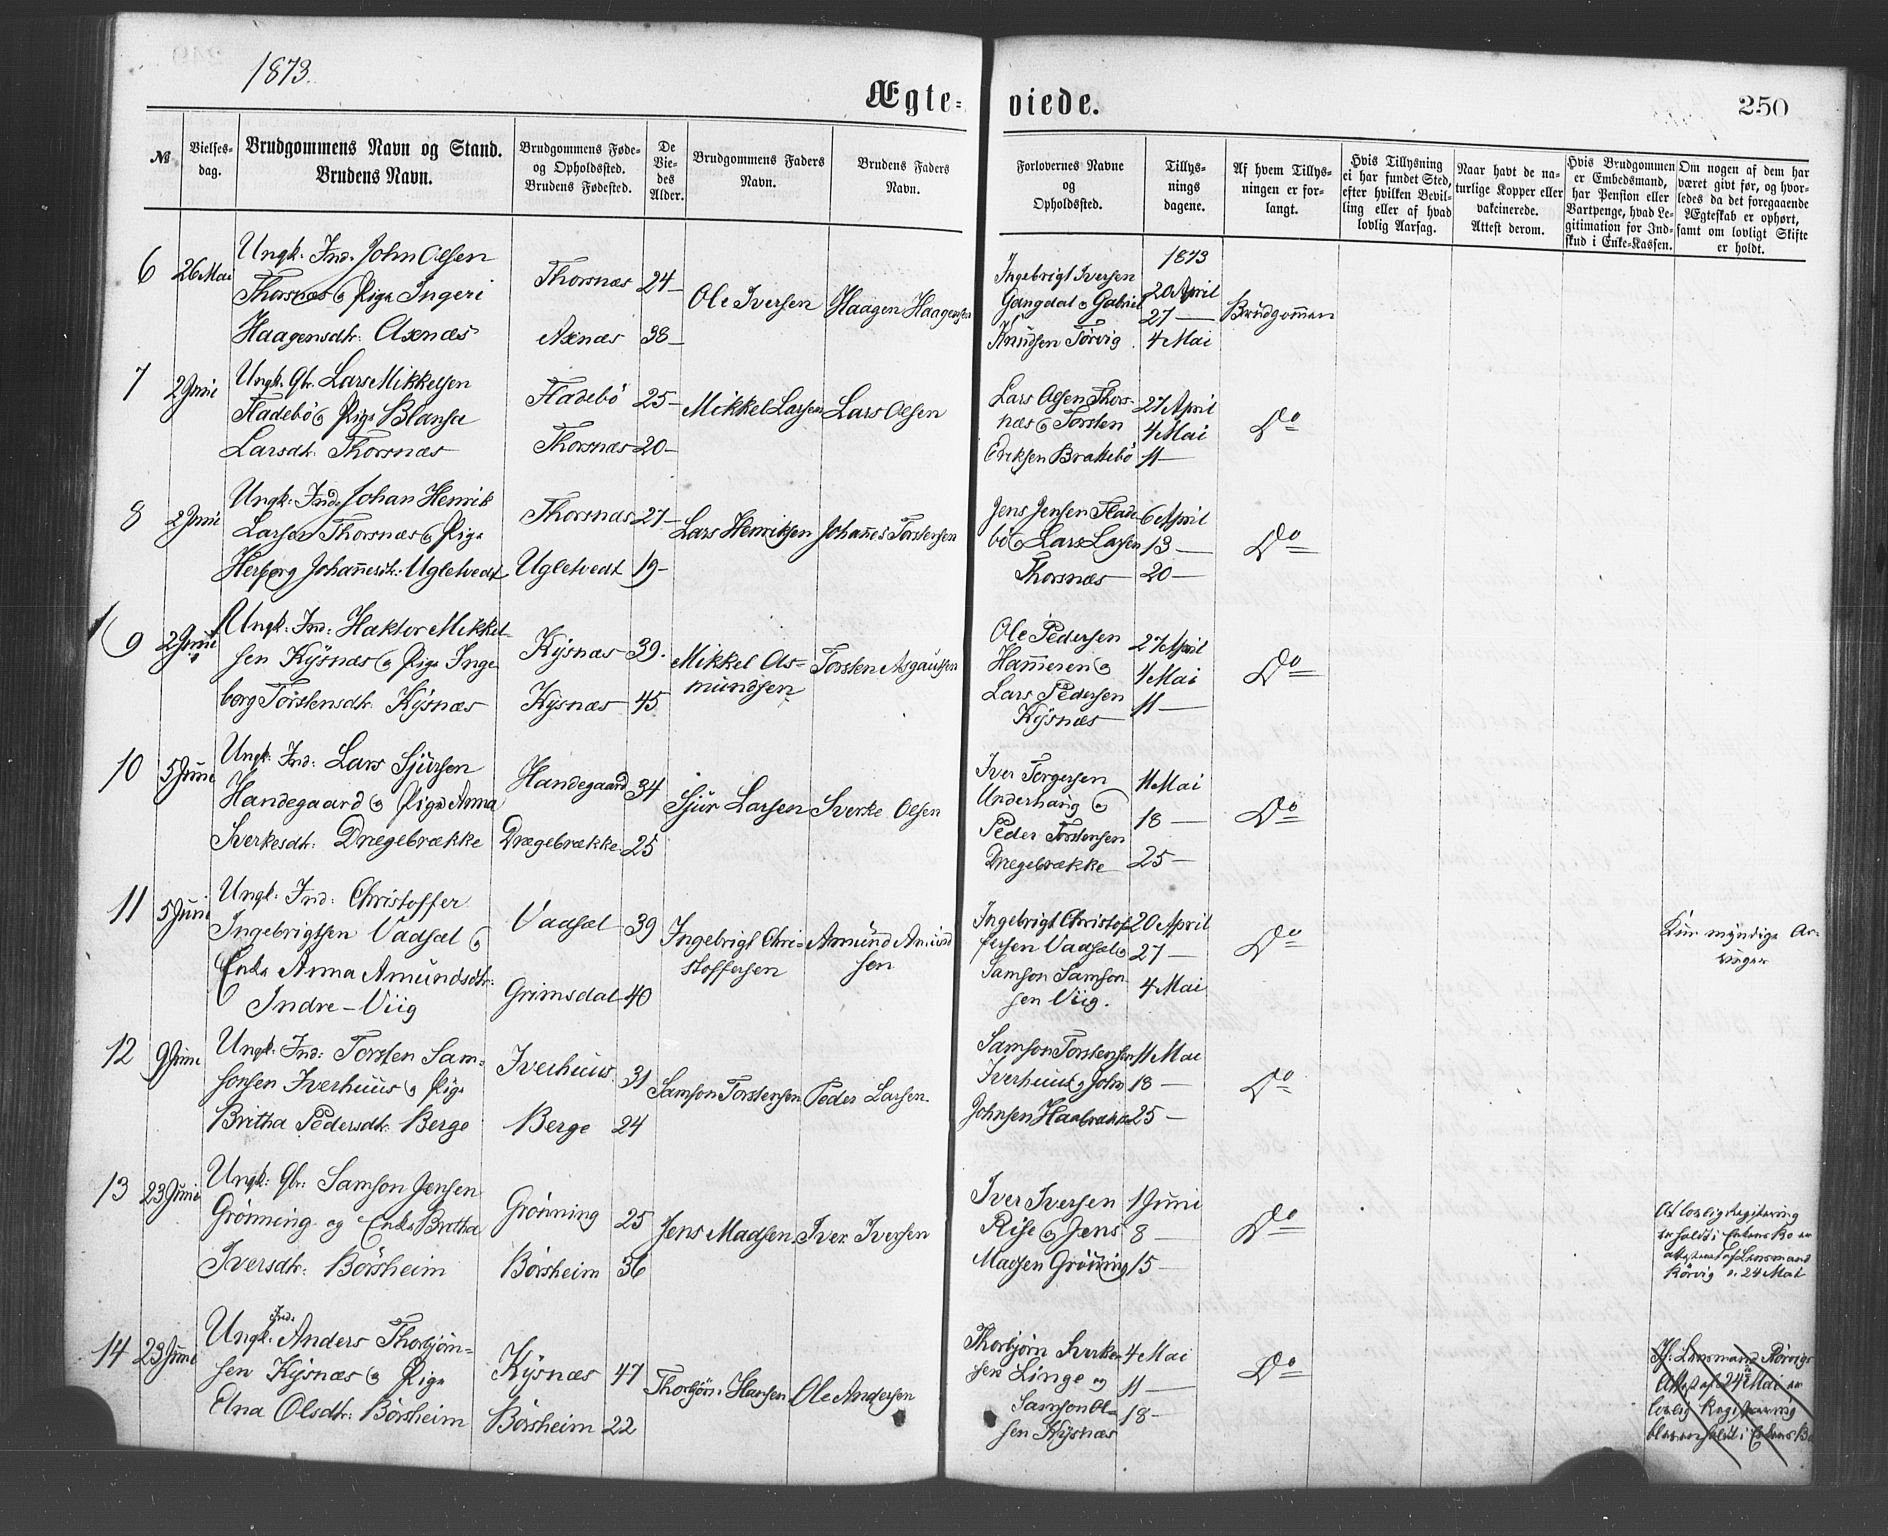 1873.
Ægteviede.
250
№
Vielsesdag.
Brudgommens Navn og Stand.
Brudens Navn.
Brudgommens Føde- og Opholdssted.
Brudens Fødested.
De Viedes Alder.
Brudgommens Faders Navn.
Brudens Faders Navn.
Forlovernes Navne og Opholdssted.
Tillysningsdagene.
Af hvem Tillysningen er forlangt.
Hvis Tillysning ei har fundet Sted, efter hvilken Bevilling eller af hvad lovlig Aarsag.
Naar havt de naturlige Kopper eller vakcinerede. Attest derom.
Hvis Brudgommen er Embedsmand, har Pension eller Vartpenge, hvad Legitimation for Indskud i Enke-Kassen.
Om nogen af dem har været givt før, og hvorledes da det foregaaende Ægteskab er ophørt, samt om lovligt Skifte er holdt.
6 26 Mai
Ungk. Ind. John Olsen
Thorsnæs og Pige Ingeri
Haagensdtr. Axnæs
Thorsnæs 24
Axnæs 38
Ole Iversen
Haagen Haagensen
Ingebrigt Iversen
Gangdal og Gabriel
Knudsen Tørvig
1873
20 April
27
4 Mai
Brudgommen
7 2 Juni
Ungk. Gbr. Lars Mikkelsen
Fladebø og Pige Blansa
Larsdt. Thorsnæs
Fladebø 25
Thorsnæs 20
Mikkel Larsen
Lars Olsen
Lars Olsen Thors-
næs og Torsten
Eriksen Brattebø
27 April
4 Mai
11
Do
8 2 Juni
Ungk: Ind. Johan Henrik
Larsen Thorsnæs og Pige
Herborg Johannesdt: Ugletvedt
Thorsnæs 27
Ugletvedt 19
Lars Henriksen
Johannes Torstensen
Jens Jensen Flade
bø og Lars Larsen
Thorsnæs
6 April
13
20
Do
9 2 Juni
Ungk: Ind: Haktor Mikkel-
sen Kysnæs og Pige Inge
borg Torstensdt. Kysnæs
Kysnæs 39.
Kysnæs 45
Mikkel As-
mundsen
Torsten Asgautsen
Ole Pedersen
Hammeren og
Lars Pedersen
Kysnæs
27 April
4 Mai
11
Do
10 5 Juni
Ungk. Ind: Lars Sjursen
Handegaard og Pige Anna
Sverkesdt: Drægebrække
Handegaard 34
Drægebrække 25
Sjur Larsen
Sverke Olsen
Iver Torgersen
Underhaug og
Peder Torstensen
Drægebrække
11 Mai
18
25
Do
11 5 Juni
Ungk: Ind: Christoffer
Ingebrigtsen Vadsel og
Enke Anna Amundsdtr:
Indre-Viig
Vadsel 39
Grimsdal 40
Ingebrigt Chri-
stoffersen
Amund Amund
sen
Ingebrigt Christof-
fersen Vadsel og
Samson Samson
sen Viig.
20 April
27
4 Mai
Do
Kun myndige Ar-
vinger
12 9 Juni
Ungk: Ind: Torsten Sam-
sonsen Iverhuus og Pige
Britha Pedersdt: Berge
Iverhuus 31
Berge 24
Samson Torstensen
Peder Larsen
Samson Torstensen
Iverhuus og John
Johnsen Haabrække
11 Mai
18
25
Do
13 23 Juni
Ungk: Gbr. Samson Jensen
Grønning og Enke Britha
Iversdtr: Børsheim
Grønning 25
Børsheim 36
Jens Madsen
Iver Iversen
Iver Iversen
Rise og Jens
Madsen Grønning
1 Juni
8
15
Do
At lovlig Registering
er holdt i Enkens Bo er
attesteret af Lensmand
Rørvig d. 24 Mai
14 23 Juni
Ungk: Ind: Anders Thorbjørn-
sen Kysnæs og Pige
Elna Olsdtr: Børsheim
Kysnæs 47
Børsheim 22
Thorbjørn Hansen
Ole Andersen
Thorbjørn Sverke-
sen Linge og
Samson Ol-
sen Kysnæs
4 Mai
11
18
Do
Jf: Lensmand Rørvigs
Attest af 24 Mai er
lovlig Registering
bleven holdt i Enkens Bo